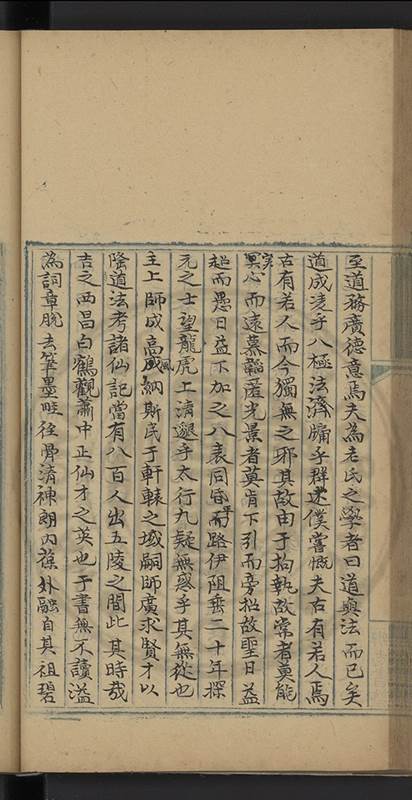 至道務廣德意焉夫為老氏之學者曰道與法而已矣
道成淩乎八極法濟牖乎群迷僕嘗慨夫古有若人焉
古有若人而今獨無之邪其故由于拘執故常者莫能
冥心而遠慕韜匿光景者莫肯下引而旁拯故聖日益
超而愚日益下加之八表同昏平路伊阻垂二十年探
元之士望龍虎上清邈乎太行九疑無惑乎其無從也
主上師成高風納斯民于軒轅之域嗣師廣求賢才以
隆道法考諸仙記當有八百人出五陵之間此其時哉
吉之西昌白鶴觀蕭中正仙才之英也于書無不讀溢
為詞章脫去筆墨畦徑骨清神朗內葆外融自其祖碧